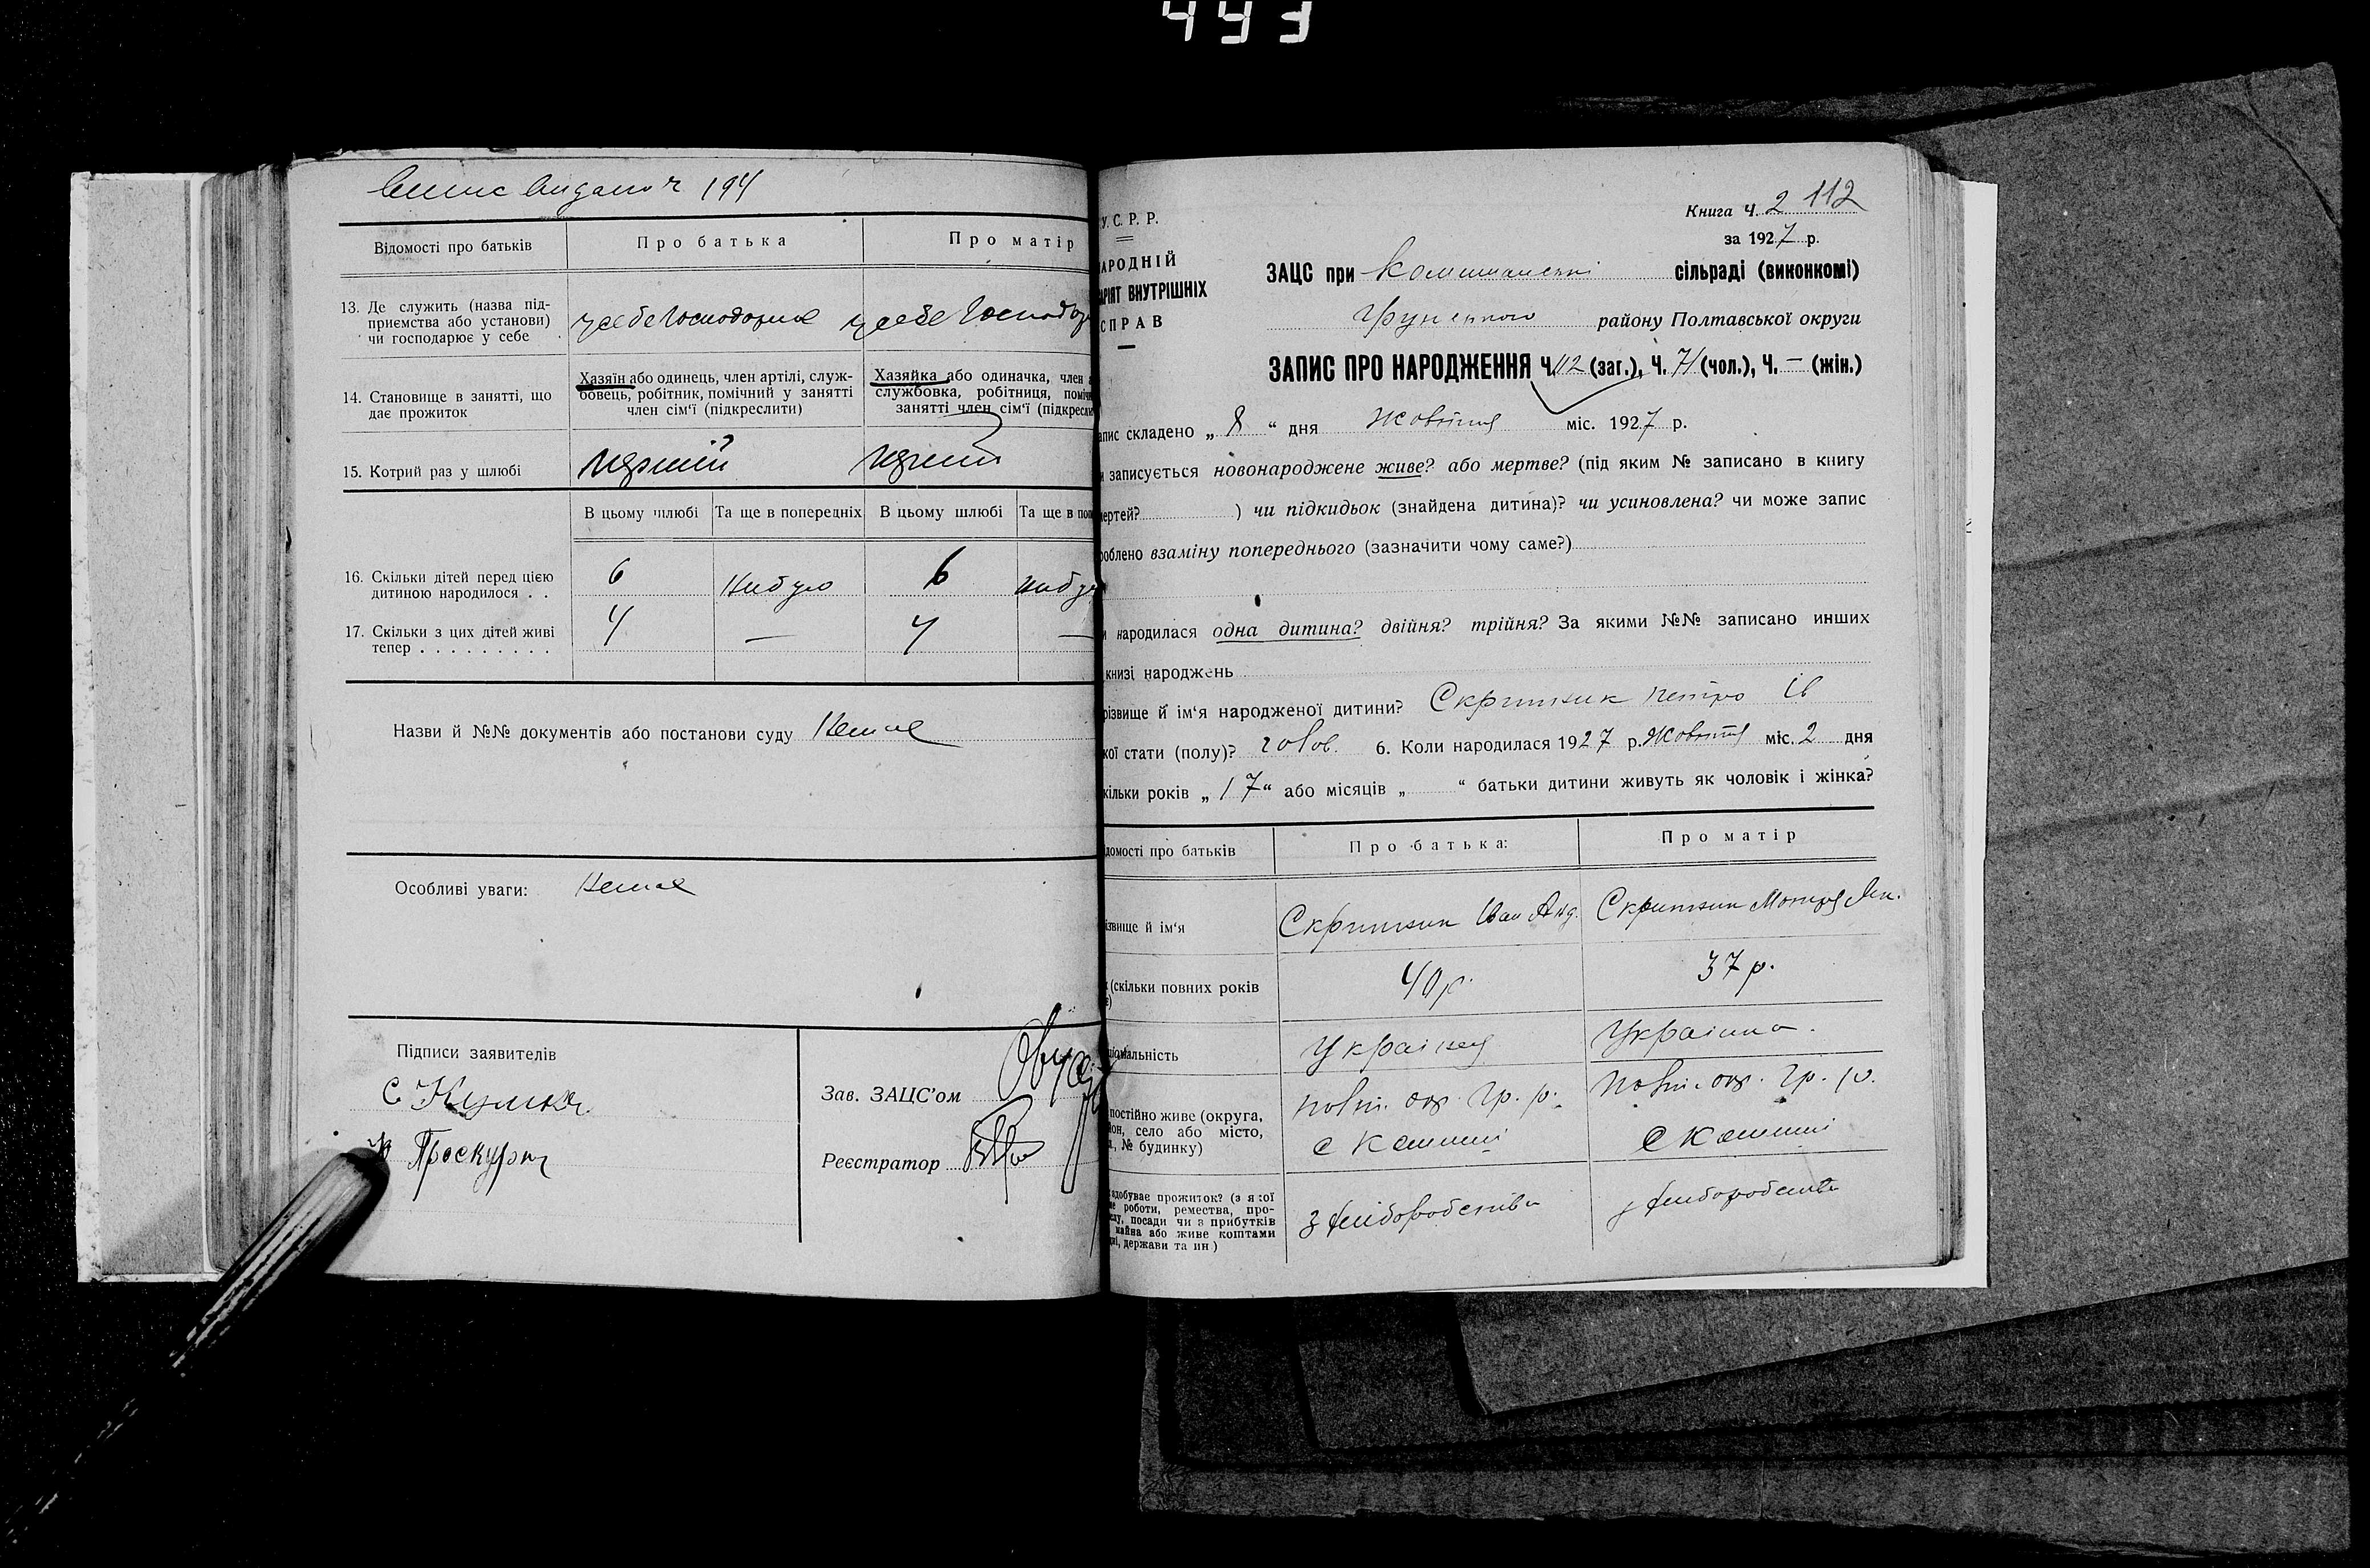 443
Випис видано ч 194
Відомості про батьків
Про батька
Про матір
13. Де служить (назва під-
приємства або установи)
чи господарює у себе
у себе господарює
у себе господар
14. Становище в занятті, що
дає прожиток
Хазяїн або одинець, член артілі, служ-
бовець, робітник, помічний у занятті
член сім'ї (підкреслити)
Хазяйка або одиначка, член а
службовка, робітниця, поміч
занятті член сім'ї (підкресли
15. Котрий раз у шлюбі
перший
перший
В цьому шлюбі
Та ще в попередніх
В цьому шлюбі
Та ще в поп
16. Скільки дітей перед цією
дитиною народилося . .
6
небуло
6
небул
17. Скільки з цих дітей живі
тепер . . . . . . . . .
4
—
4
—
Назви й №№ документів або постанови суду Немає
Особливі уваги: Немає
Підписи заявителів
Зав. ЗАЦС'ом
Реєстратор
У.С.Р.Р.
АРОДНІЙ
АРІЯТ ВНУТРІШНІХ
СПРАВ
Книга Ч. 2 112
за 1927 р.
ЗАЦС при сільраді (виконкомі)
Грунського району Полтавської округи
ЗАПИС ПРО НАРОДЖЕННЯ Ч. 112 (заг.), Ч. 71 (чол.), Ч. — (жін.)
апис складено „ 8 “ дня Жовтня міс. 1927 р.
и записується новонароджене живе? або мертве? (під яким № записано в книгу
мертей? ) чи підкидьок (знайдена дитина)? чи усиновлена? чи може запис
роблено взаміну попереднього (зазначити чому саме?)
и народилася одна дитина? двійня? трійня? За якими №№ записано инших
книзі народжень
різвище й ім'я народженої дитини? Скрипник Петро Ів
кої стати (полу)? чолов. 6. Коли народилася 1927 р. Жовтня міс. 2 дня
кільки років „ 17 “ або місяців „ “ батьки дитини живуть як чоловік і жінка?
домості про батьків
Про батька:
Про матір
ізвище й ім'я
Скрипник Іван Анд.
Скрипник Мотря
(скільки повних років
е)
40 р.
37 р.
ціональність
Українец
Українка.
постійно живе (округа,
йон, село або місто,
, № будинку)
Полт. окр. Гр. р.
с
Полт. окр. Гр. р.
с
здобуває прожиток? (з якої
ме роботи, ремества, про-
слу, посади чи з прибутків
майна або живе коштами
дні, держави та ин)
з хліборобства
з хліборобства